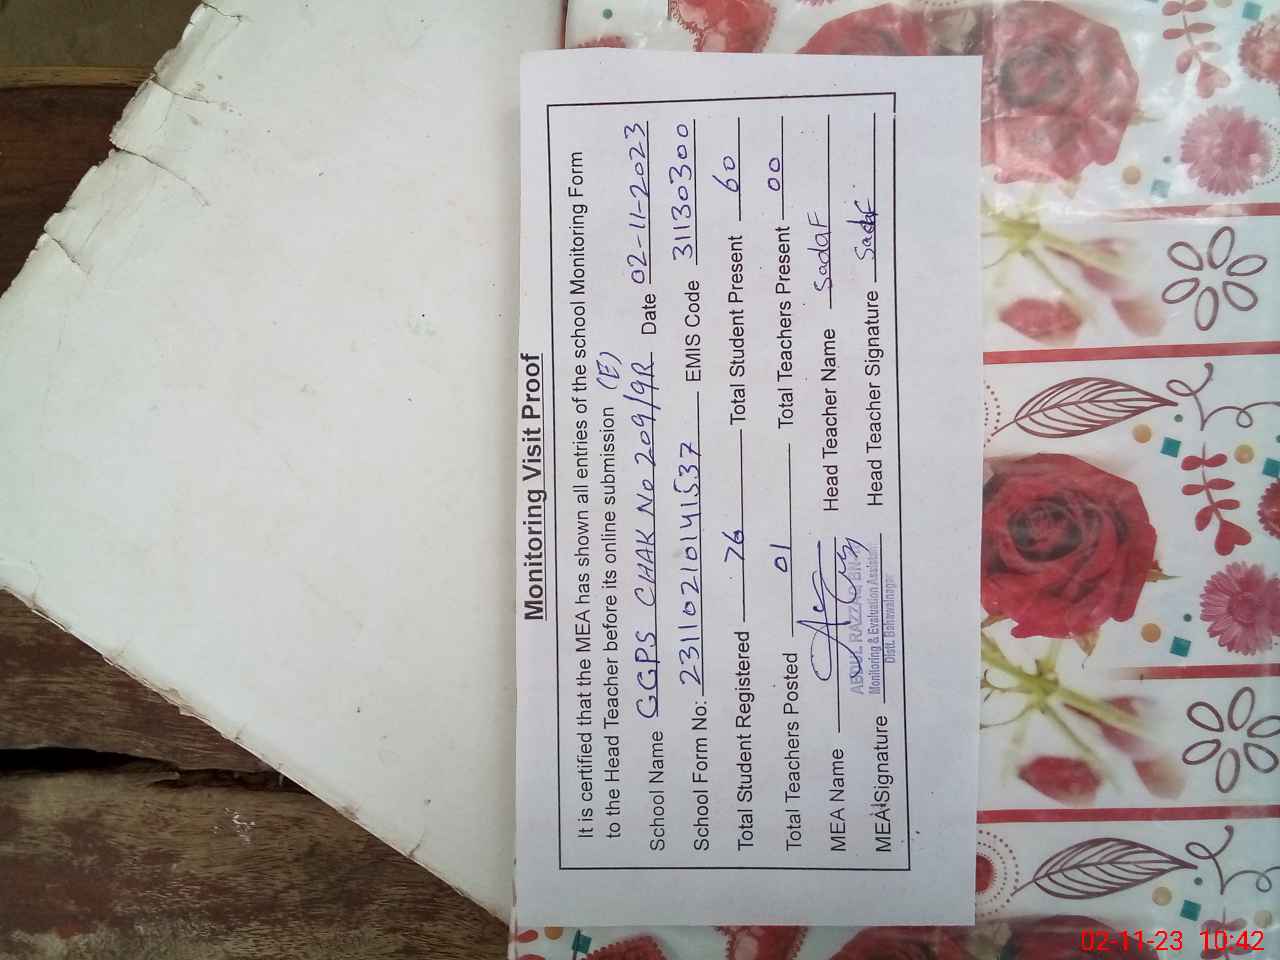 Monitoring Visit Proof
It is certified that the MEA has shown all entries of the school Monitoring Form
to the Head Teacher before its online submission (E)
School Name GGPS CHAK No 209/9R Date 02-11-2023
School Form No: 23110210141537 EMIS Code 31130300
Total Student Registered 76 Total Student Present 60
Total Teachers Posted 01 Total Teachers Present 00
MEA Name Head Teacher Name SadaF
MEA Signature Head Teacher Signature Sadaf
ABDUL RAZZAQ
Monitoring & Evaluation Assistant
Distt. Bahawalnagar
02-11-23 10:42